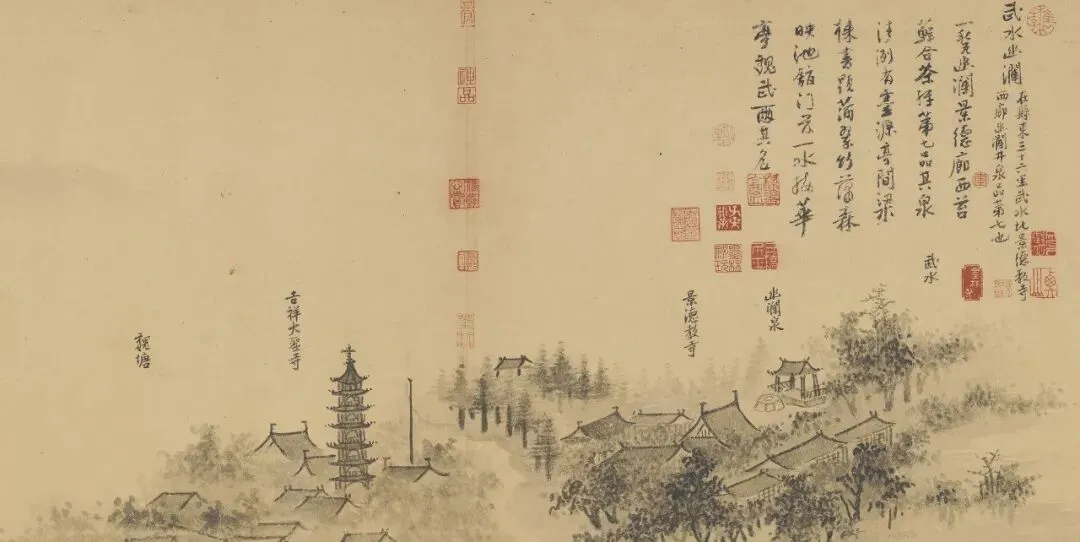 武水幽瀾
在縣東三十六里武水北景德教寺
西廊幽瀾井泉品第七也
一甃幽瀾景德廊西苔
蘚合茶經第七品其泉
清冽有靈源亭間梁
棟書題滿翠竹蕭森
映池館門前一水接華
亭魏武兩其名
武水
幽瀾泉
景德教寺
神品
吉祥大聖寺
魏塘